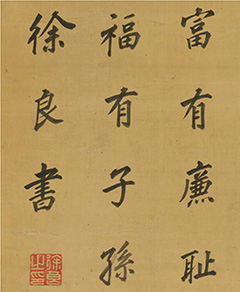 富有廉耻
福有子孫
徐良書
徐良之印